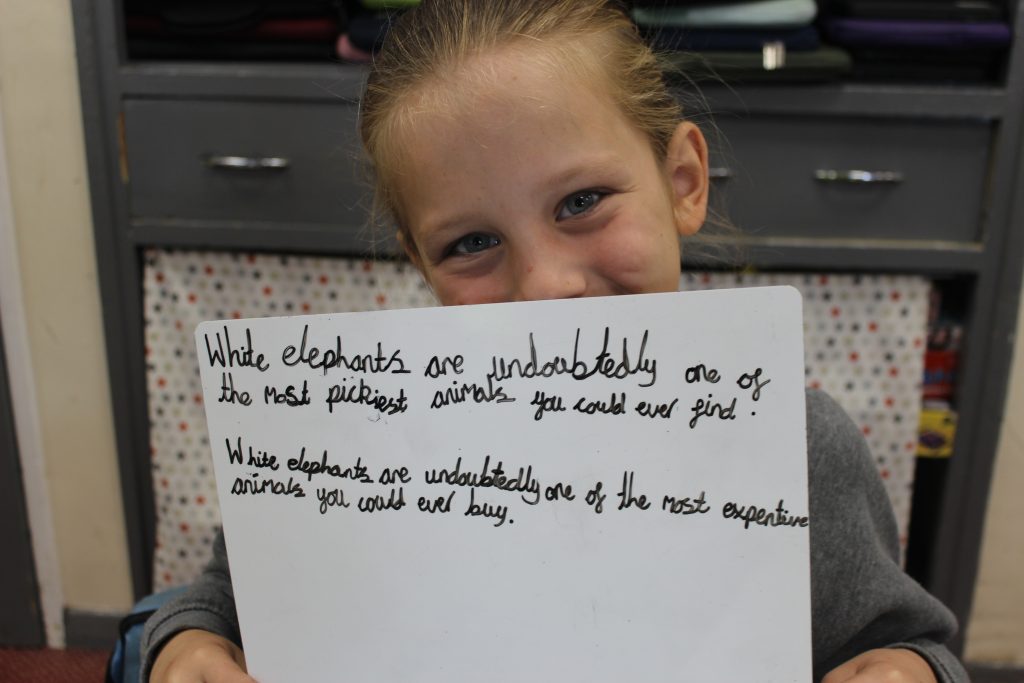 White elephants are undoubtedly one of
the most pickiest animals you could ever find.
White elephants are undoubtedly one of the most expentive
animals you could ever buy.